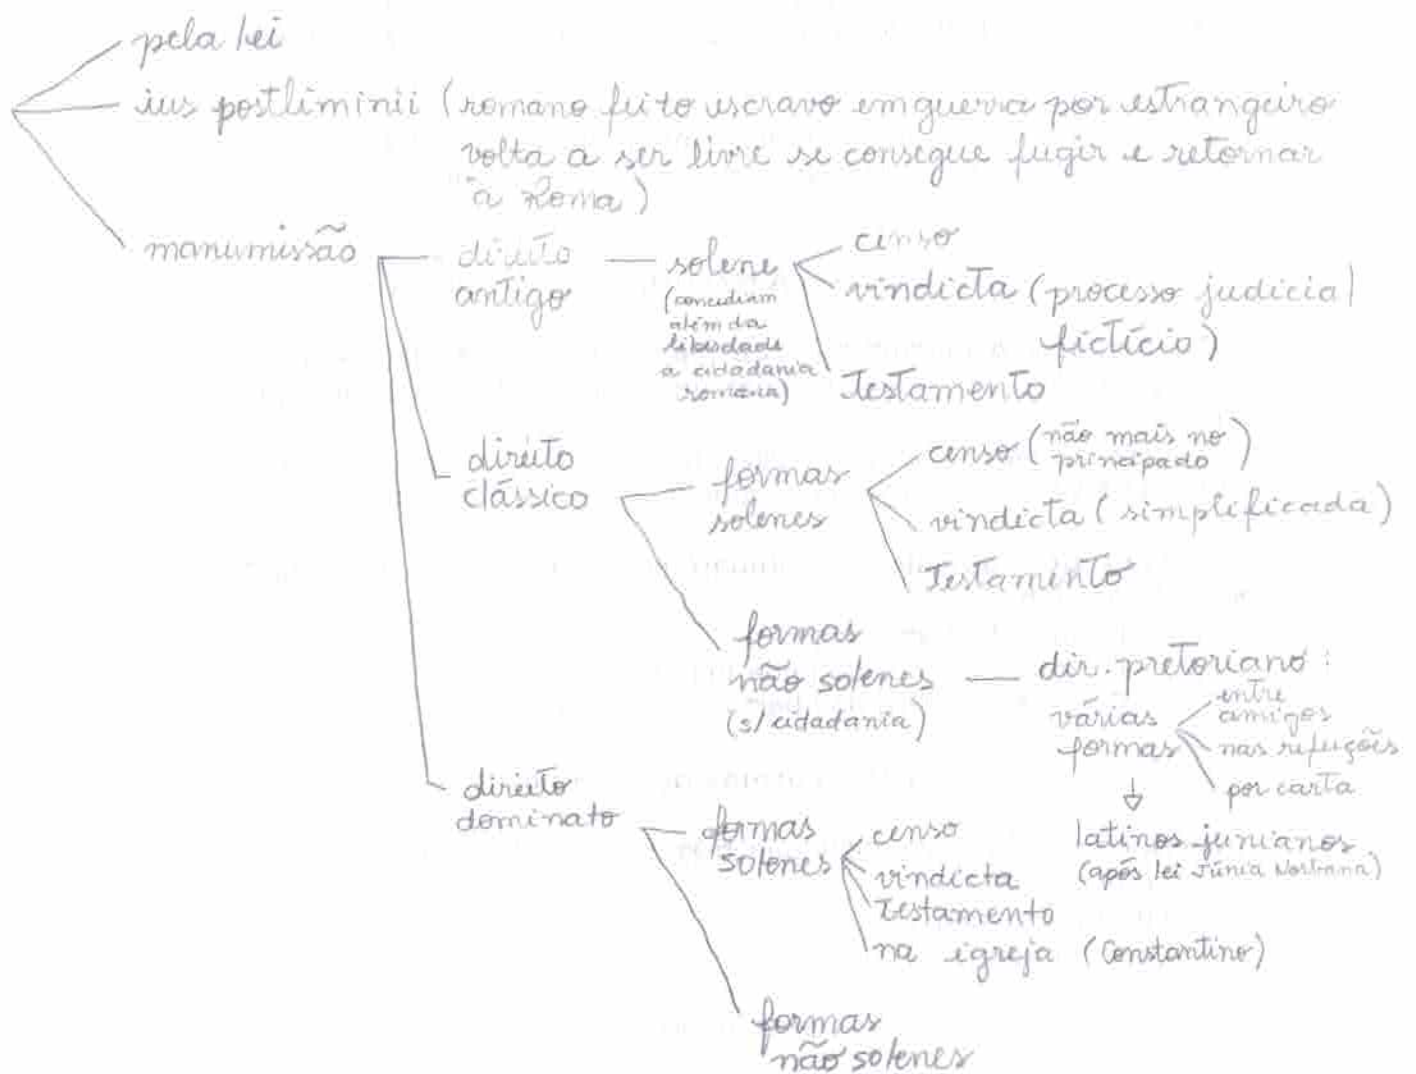 pela lei
ius postliminii (romano feito escravo em guerra por estrangeiro
volta a ser livre se consegue fugir e retornar
à Roma)
manumissão
direito
antigo
solene
(concediam
além da
liberdade
a cidadania
romana)
censo
vindicta (processo judicial
fictício)
Testamento
direito
clássico
formas
solenes
censo (não mais no
principado)
vindicta (simplificada)
Testamento
formas
não solenes
(s/ cidadania)
dir. pretoriano:
várias
formas
entre
amigos
nas refeições
por carta
latinos junianos
(após lei Júnia Norbana)
direito
dominato
formas
solenes
censo
vindicta
Testamento
na igreja (Constantino)
formas
não solenes